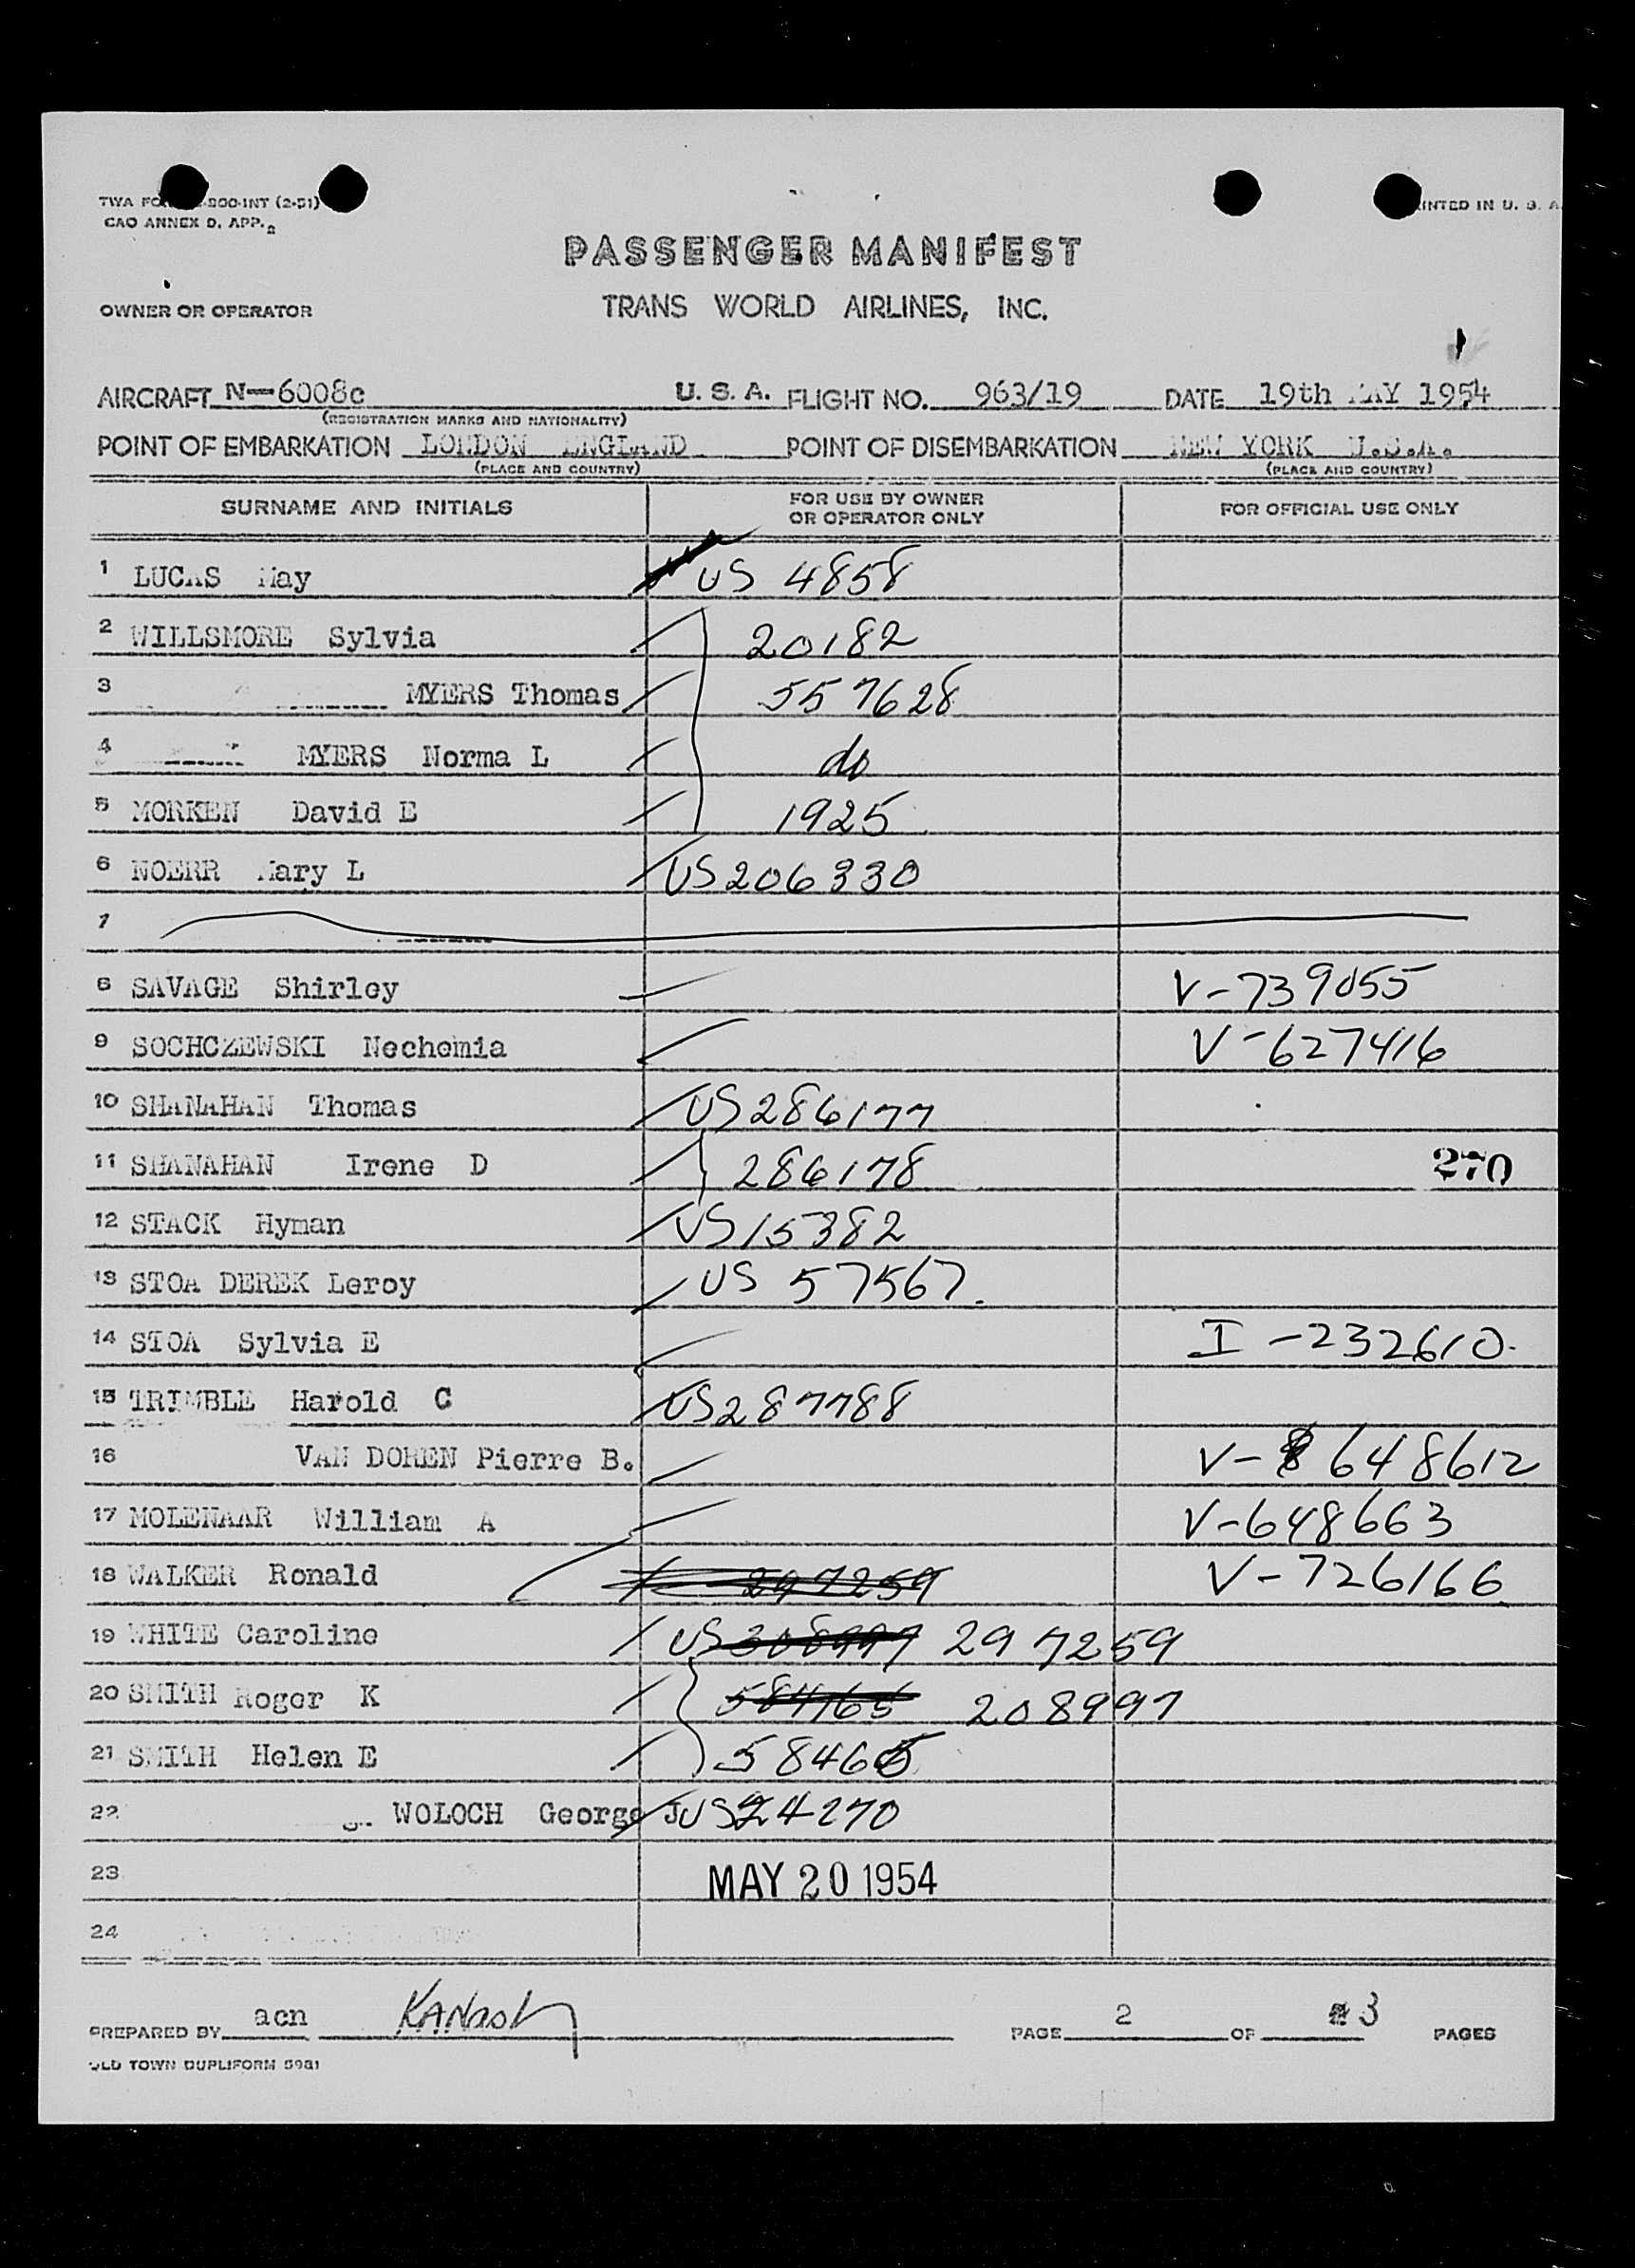 PASSENGER MANIFEST
CAO ANNEX D, APP. 2
OWNER OR OPERATOR TRANS WORLD AIRLINES, INC.
AIRCRAFT N-6008c U. S. A. FLIGHT NO. 963/19 DATE 19th MAY 1954
(REGISTRATION MARKS AND NATIONALITY)
POINT OF EMBARKATION LONDON ENGLAND POINT OF DISEMBARKATION NEW YORK U.S.A.
(PLACE AND COUNTRY) (PLACE AND COUNTRY)
SURNAME AND INITIALS FOR USE BY OWNER OR OPERATOR ONLY FOR OFFICIAL USE ONLY
1 LUCAS May US 4858
2 WILLSMORE Sylvia 20182
3 MYERS Thomas 557628
4 MYERS Norma L do
5 MORKEN David E 1925
6 NOERR Mary L US206330
7
8 SAVAGE Shirley V-739055
9 SOCHCZEWSKI Nechemia V-627416
10 SHANAHAN Thomas US286177
11 SHANAHAN Irene D 286178 270
12 STACK Hyman US15382
13 STOA DEREK Leroy US 57567.
14 STOA Sylvia E I-232610.
15 TRIMBLE Harold C US287788
16 VAN DOREN Pierre B. V-648612
17 MOLENAAR William A V-648663
18 WALKER Ronald 297259 V-726166
19 WHITE Caroline US 297259
20 SMITH Roger K 208997
21 SMITH Helen E 58465
22 WOLOCH George J US 24270
23 MAY 20 1954
24
PREPARED BY acn PAGE 2 OF 3 PAGES
OLD TOWN DUPLIFORM 5981